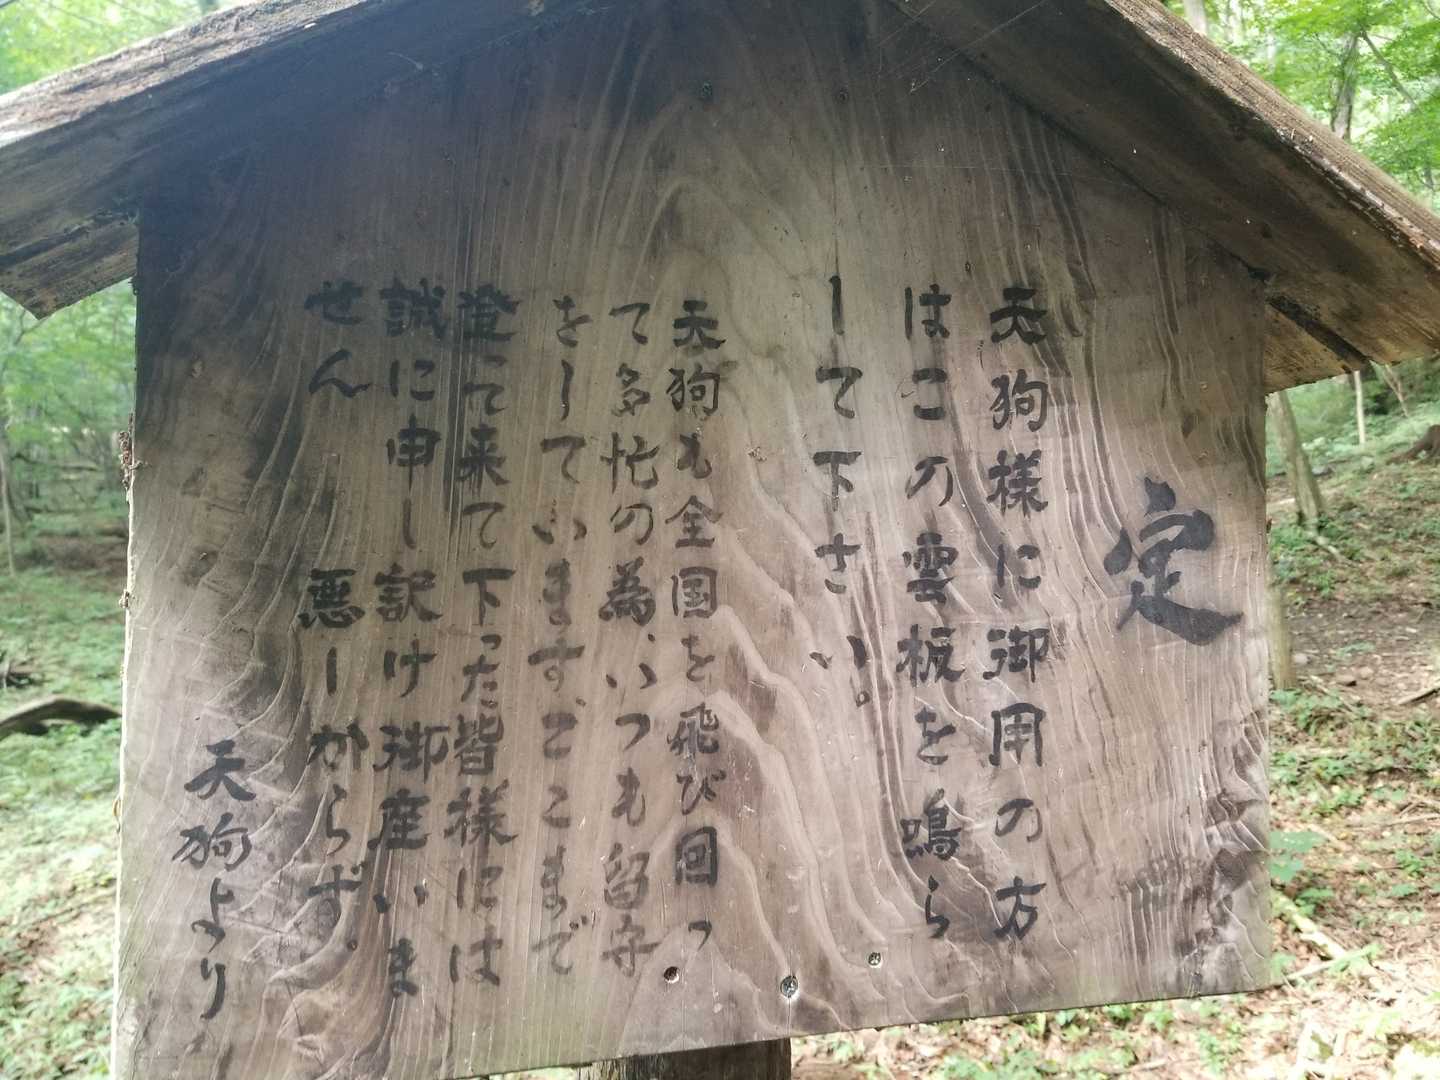 定
天狗様に御用の方
はこの雲板を鳴ら
して下さい。
天狗も全国を飛び回っ
て多忙の為、いつも留守
をしています、ここまで
登って来て下った皆様には
誠に申し訳け御座いま
せん 悪しからず。
天狗より